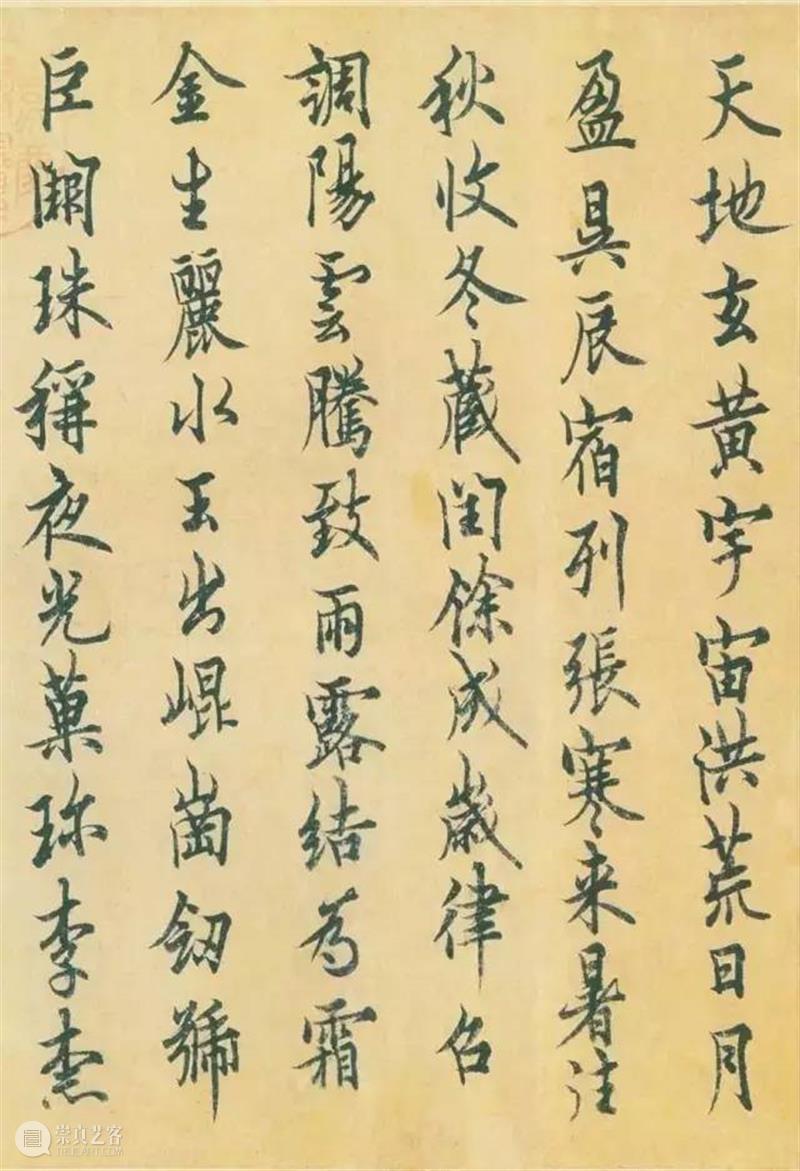 天地玄黄宇宙洪荒日月
盈昃辰宿列張寒来暑往
秋收冬藏閏餘成歲律召
調陽雲騰致雨露結為霜
金生麗水玉出崐崗釼號
巨闕珠稱夜光菓珎李柰
崇真艺客